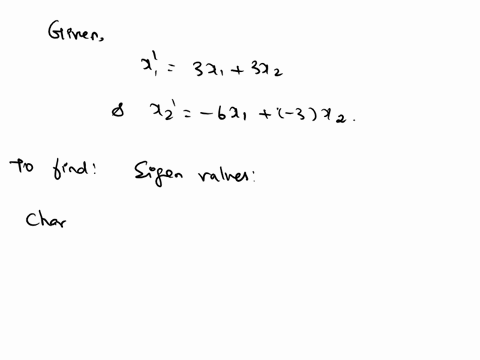 Given,
x₁' = 3x₁ + 3x₂
& x₂' = -6x₁ + (-3)x₂.
To find: Eigen values:
Char